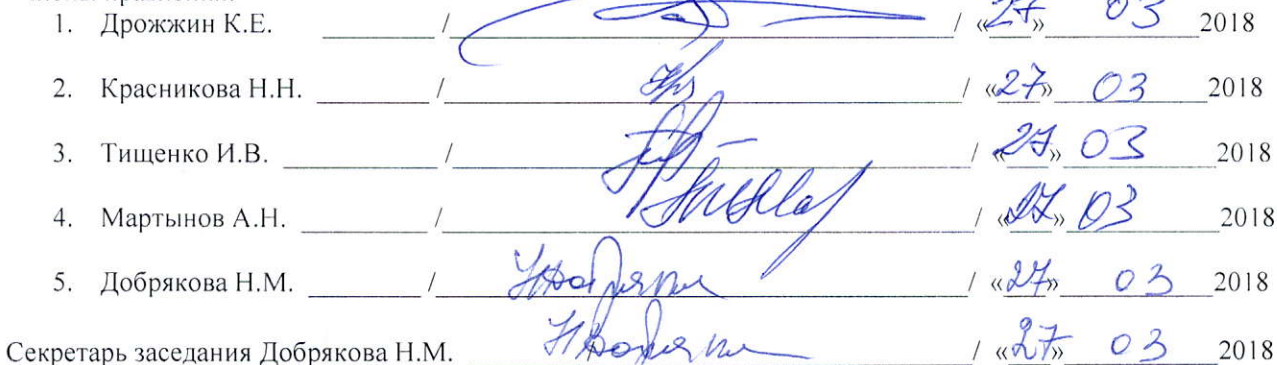 1. Дрожжин К.Е. ________ /________ / «27» 03 2018
2. Красникова Н.Н. ________ /________ / «27» 03 2018
3. Тищенко И.В. ________ /________ / «27» 03 2018
4. Мартынов А.Н. ________ /________ / «27» 03 2018
5. Добрякова Н.М. ________ /________ / «27» 03 2018
Секретарь заседания Добрякова Н.М. ________ / «27» 03 2018